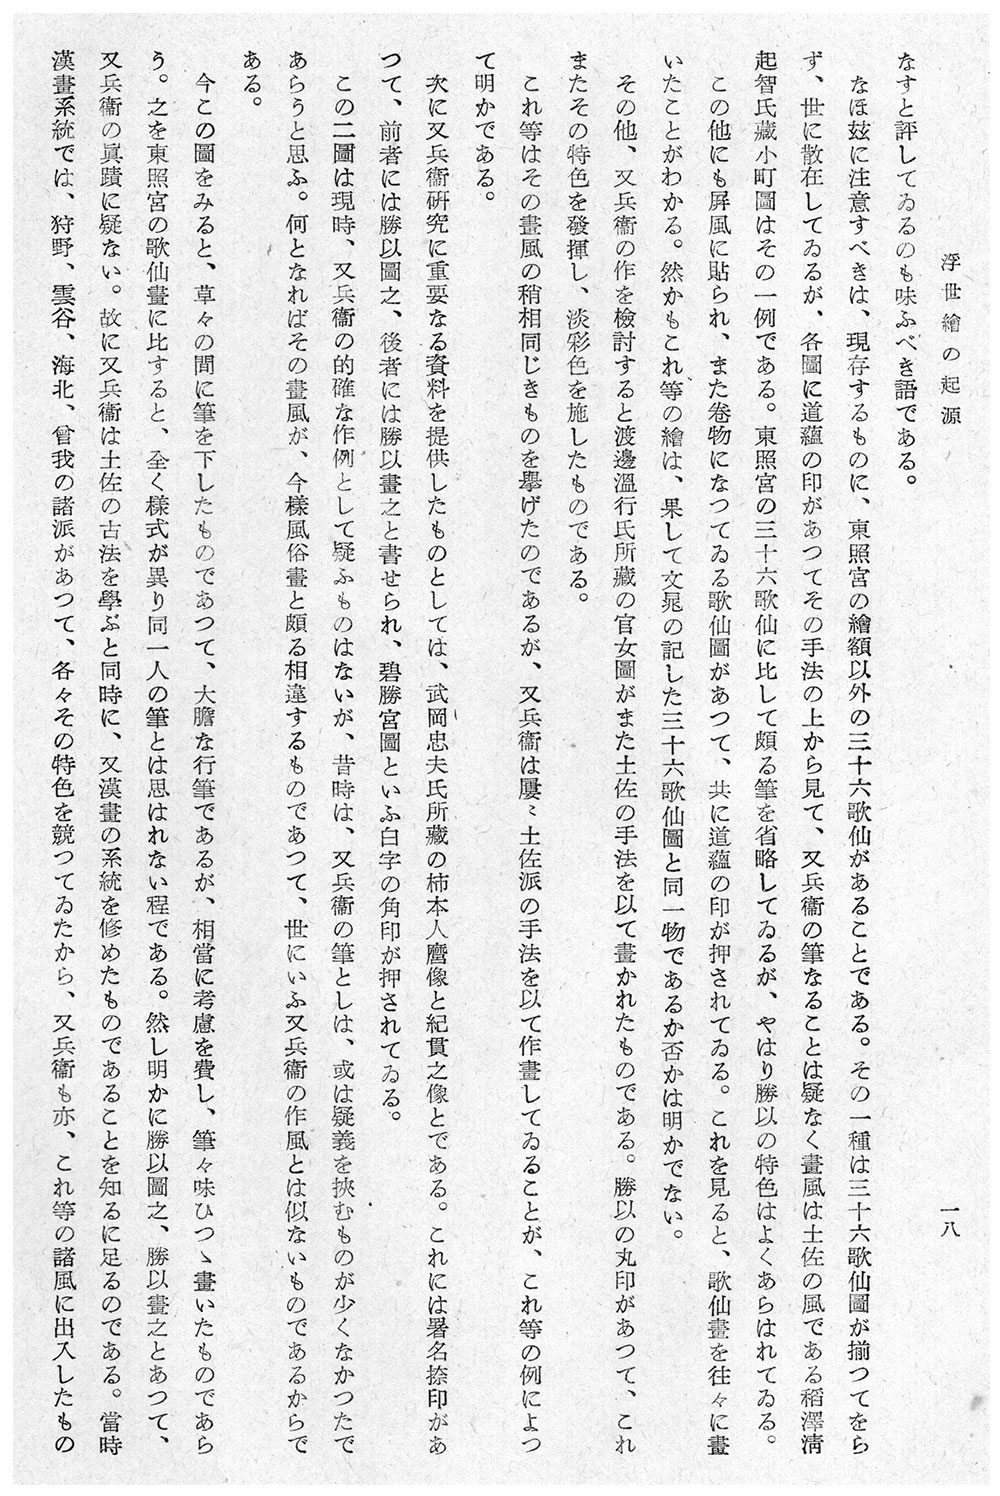 浮世繪の起源
一八
なすと評してゐるのも味ふべき語である。
なほ玆に注意すべきは、現存するものに、東照宮の繪額以外の三十六歌仙があることである。その一種は三十六歌仙圖が揃つてをら
ず、世に散在してゐるが、各圖に道蘊の印があつてその手法の上から見て、又兵衞の筆なることは疑なく畫風は土佐の風である稻澤淸
起智氏藏小町圖はその一例である。東照宮の三十六歌仙に比して頗る筆を省略してゐるが、やはり勝以の特色はよくあらはれてゐる。
この他にも屏風に貼られ、また卷物になつてゐる歌仙圖があつて、共に道蘊の印が押されてゐる。これを見ると、歌仙畫を往々に畫
いたことがわかる。然かもこれ等の繪は、果して文晁の記した三十六歌仙圖と同一物であるか否かは明かでない。
その他、又兵衞の作を檢討すると渡邊溫行氏所藏の官女圖がまた土佐の手法を以て畫かれたものである。勝以の丸印があつて、これ
またその特色を發揮し、淡彩色を施したものである。
これ等はその畫風の稍相同じきものを擧げたのであるが、又兵衞は屢〻土佐派の手法を以て作畫してゐることが、これ等の例によつ
て明かである。
次に又兵衞硏究に重要なる資料を提供したものとしては、武岡忠夫氏所藏の柿本人麿像と紀貫之像とである。これには署名捺印があ
つて、前者には勝以圖之、後者には勝以畫之と書せられ、碧勝宮圖といふ白字の角印が押されてゐる。
この二圖は現時、又兵衞の的確な作例として疑ふものはないが、昔時は、又兵衞の筆としは、或は疑義を挾むものが少くなかつたで
あらうと思ふ。何となればその畫風が、今樣風俗畫と頗る相違するものであつて、世にいふ又兵衞の作風とは似ないものであるからで
ある。
今この圖をみると、草々の間に筆を下したものであつて、大膽な行筆であるが、相當に考慮を費し、筆々味ひつゝ畫いたものであら
う。之を東照宮の歌仙畫に比すると、全く樣式が異り同一人の筆とは思はれない程である。然し明かに勝以圖之、勝以畫之とあつて、
又兵衞の眞蹟に疑ない。故に又兵衞は土佐の古法を學ぶと同時に、又漢畫の系統を修めたものであることを知るに足るのである。當時
漢畫系統では、狩野、雲谷、海北、曾我の諸派があつて、各々その特色を競つてゐたから、又兵衞も亦、これ等の諸風に出入したもの